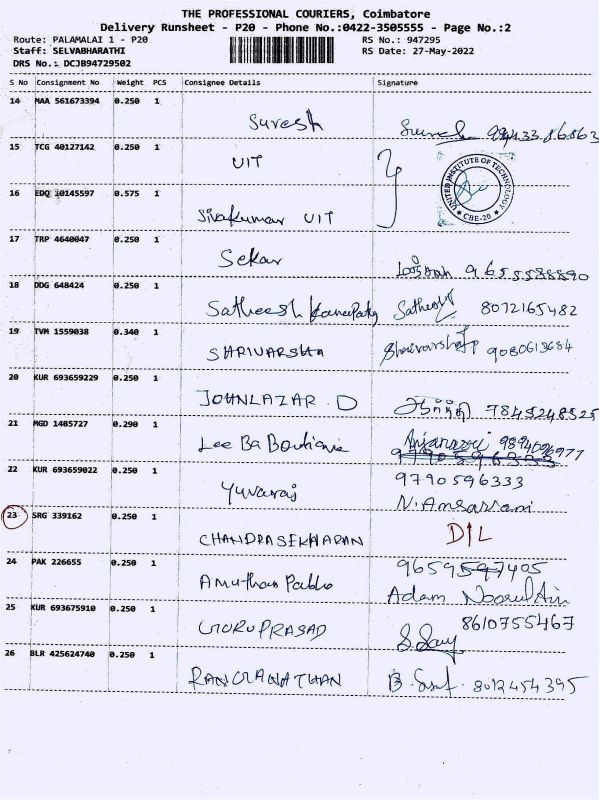 THE PROFESSIONAL COURIERS, Coimbatore
Delivery Runsheet - P20 - Phone No.:0422-3505555 - Page No.:2
Route: PALAMALAI 1 - P20 RS No.: 947295
Staff: SELVABHARATHI RS Date: 27-May-2022
DRS No.: DCJB94729502
S No Consignment No Weight PCS Consignee Details Signature
14 MAA 561673394 0.250 1
Suresh
15 TCG 40127142 0.250 1
UIT
UNITED INSTITUTE OF TECHNOLOGY
CBE-20
16 EDQ 10145597 0.575 1
Sivakumar UIT
17 TRP 4640047 0.250 1
Sekar
18 DDG 648424 0.250 1
Satheesh Satheesh 8072165482
19 TVM 1559038 0.340 1
SHRIVARSHA 9080613684
20 KUR 693659229 0.250 1
JOHNLAZAR. D 7845248525
21 MGD 1485727 0.290 1
Lee Ba Boutique
22 KUR 693659022 0.250 1
9790596333
Yuvaraj
23 SRG 339162 0.250 1
CHANDRASEKHARAN D/L
24 PAK 226655 0.250 1
Adam
25 KUR 693675910 0.250 1
GURUPRASAD 8610755467
26 BLR 425624740 0.250 1
RANGANATHAN 8012454395